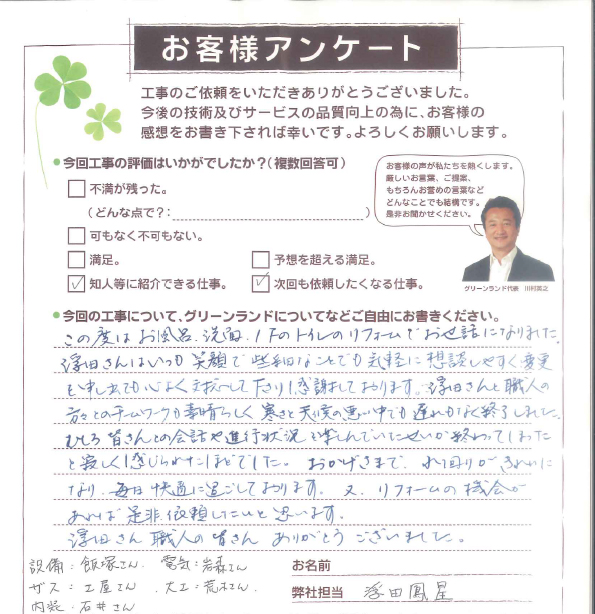 お客様アンケート
工事のご依頼をいただきありがとうございました。
今後の技術及びサービスの品質向上の為に、お客様の
感想をお書き下されば幸いです。よろしくお願いします。
今回工事の評価はいかがでしたか？（複数回答可）
不満が残った。
（どんな点で？：                ）
可もなく不可もない。
満足。
予想を超える満足。
知人等に紹介できる仕事。
次回も依頼したくなる仕事。
お客様の声が私たちを熱くします。
厳しいお言葉、ご提案、
もちろんお誉めの言葉など
どんなことでも結構です。
是非お聞かせください。
グリーンランド代表 川村英之
今回の工事について、グリーンランドについてなどご自由にお書きください。
この度はお風呂、洗面、1Fのトイレのリフォームでお世話になりました。
浮田さんはいつも笑顔で些細なことでも気軽に想談しやすく変更
を申し出ても心よく対応して下さり感謝しております。浮田さんと職人の
方々とのチームワークも素晴らしく寒さと天候の悪い中でも遅れがなく終了しました。
むしろ皆さんとの会話や進行状況を楽しんでいたせいか終わってしまった
と寂しく感じられたほどでした。おかげさまで、水回りがきれいに
なり、毎日快適に過ごしております。又、リフォームの機会が
あれば是非依頼したいと思います。
浮田さん 職人の皆さん ありがとうございました。
設備：飯塚さん 電気：岩森さん
ガス：土屋さん 大工：荒木さん
内装：石井さん
お名前
弊社担当 浮田鳳星